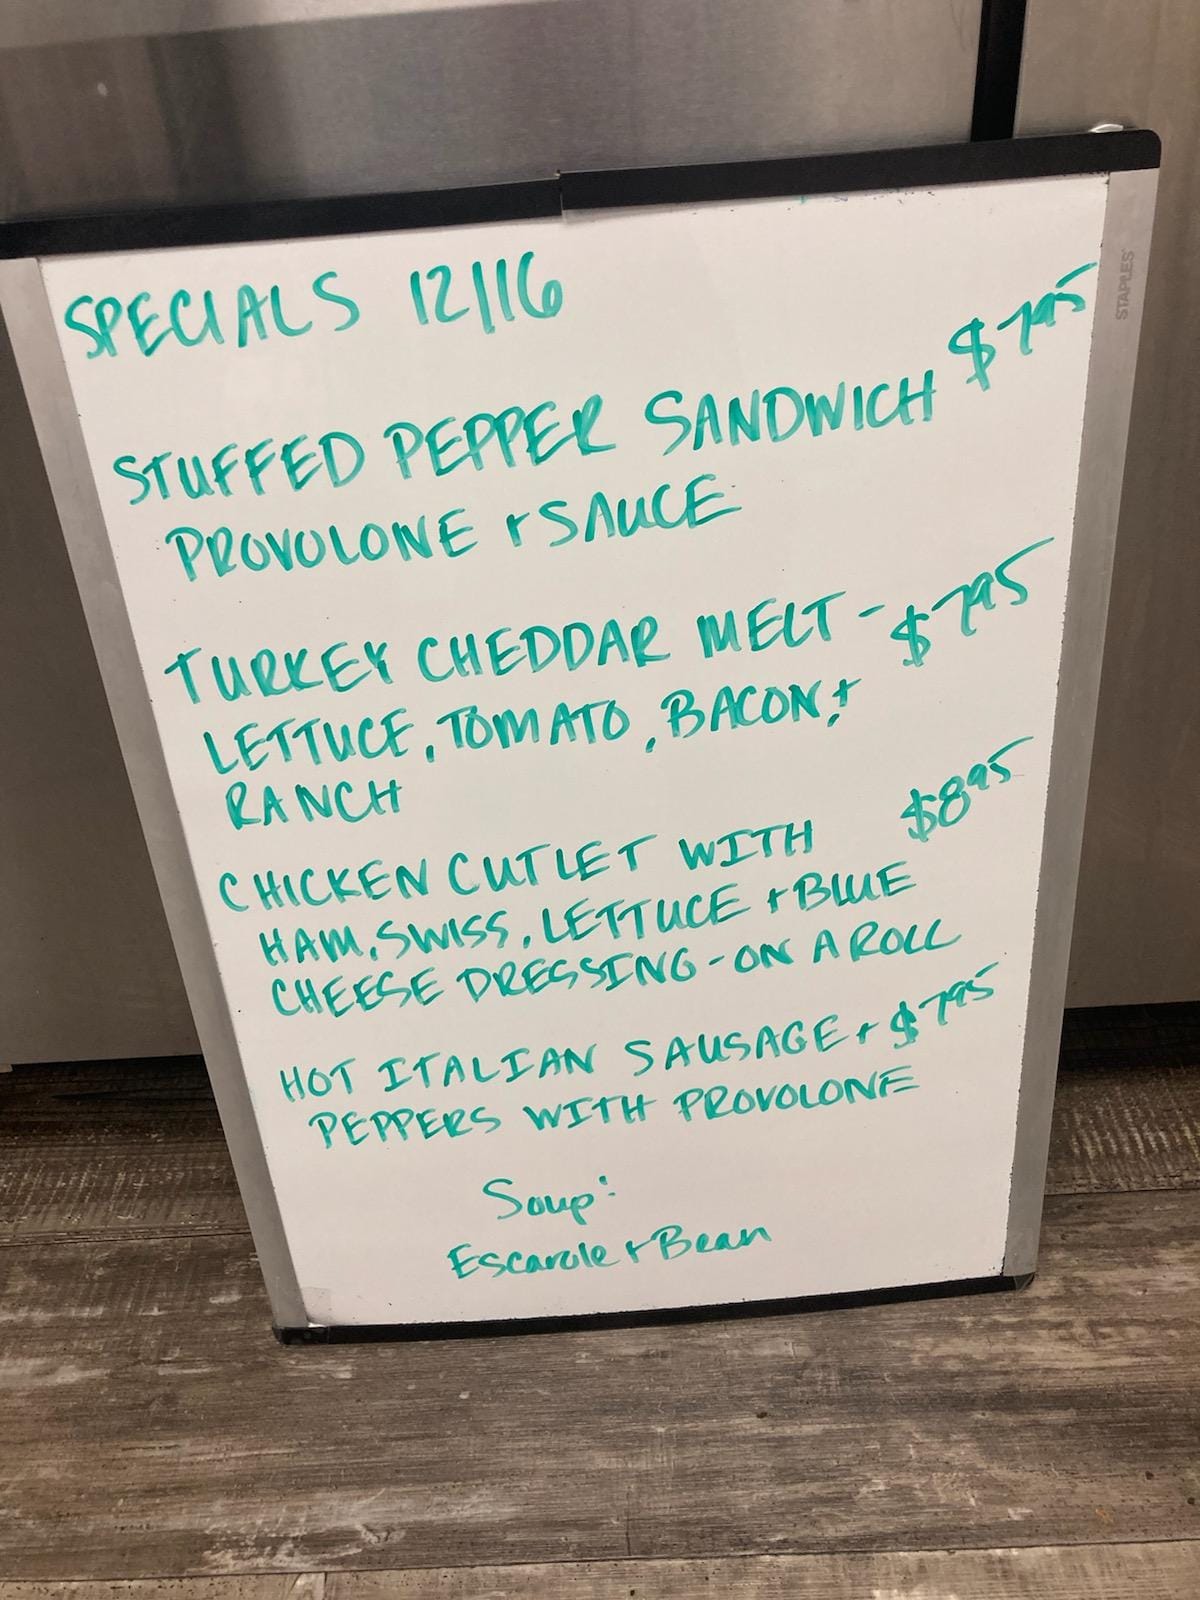 SPECIALS 12/16
STUFFED PEPPER SANDWICH $7.95
PROVOLONE + SAUCE
TURKEY CHEDDAR MELT - $7.95
LETTUCE, TOMATO, BACON, +
RANCH
CHICKEN CUTLET WITH $8.95
HAM, SWISS, LETTUCE + BLUE
CHEESE DRESSING - ON A ROLL
HOT ITALIAN SAUSAGE + $7.95
PEPPERS WITH PROVOLONE
Soup:
Escarole + Bean
STAPLES